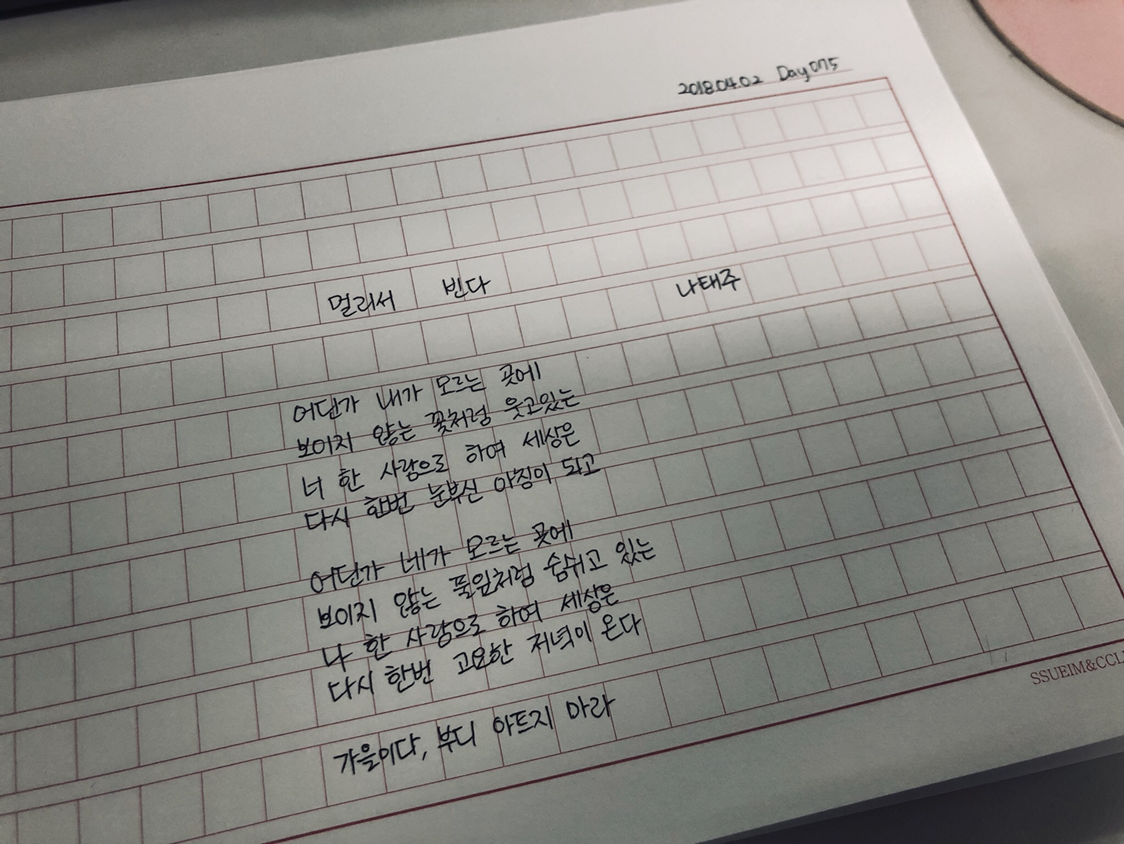 2018.04.02 Day 075
멀리서 빈다 나태주
어딘가 내가 모르는 곳에
보이지 않는 꽃처럼 웃고있는
너 한 사람으로 하여 세상은
다시 한번 눈부신 아침이 되고
어딘가 네가 모르는 곳에
보이지 않는 풀잎처럼 숨쉬고 있는
나 한 사람으로 하여 세상은
다시 한번 고요한 저녁이 온다
가을이다, 부디 아프지 마라